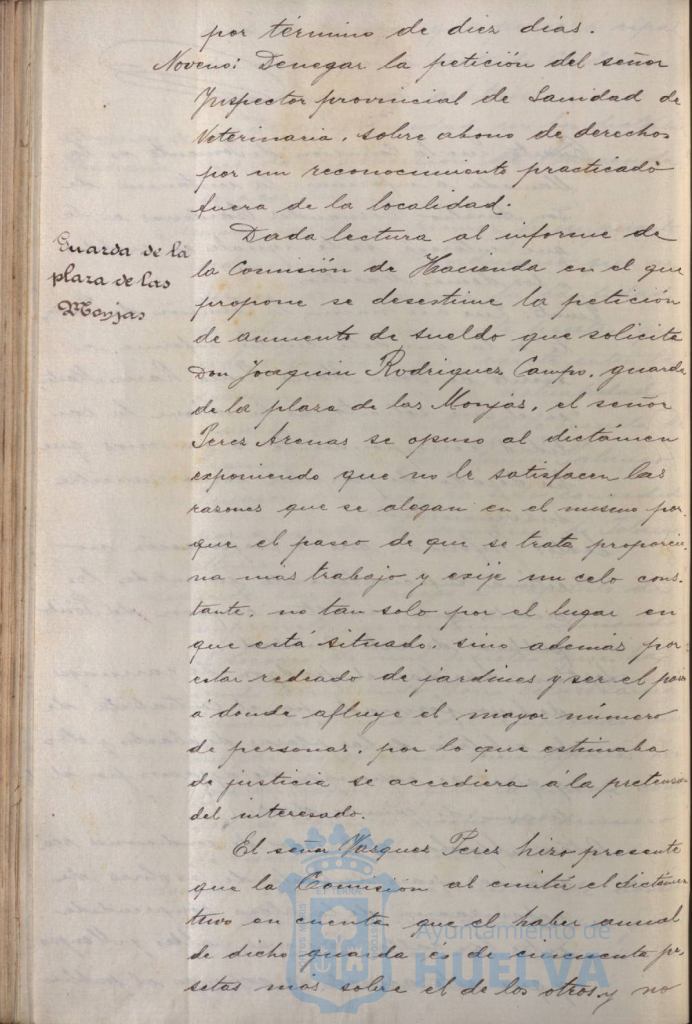 por término de diez días.
Noveno: Denegar la petición del señor
Inspector provincial de Sanidad de
Veterinaria, sobre abono de derechos
por un reconocimiento practicado
fuera de la localidad.
Guarda de la
plaza de las
Monjas
Dada lectura al informe de
la Comisión de Hacienda en el que
propone se desestime la petición
de aumento de sueldo que solicita
Don Joaquin Rodriguez Campo, guarda
de la plaza de las Monjas, el señor
Perez Arenas se opuso al dictámen
exponiendo que no le satisfacen las
razones que se alegan en el mismo por-
que el paseo de que se trata proporcio-
na mas trabajo y exije un celo cons-
tante, no tan solo por el lugar en
que está situado, sino además por
estar rodeado de jardines y ser el
á donde afluye el mayor número
de personas, por lo que estimaba
de justicia se accediera á la
del interesado.
El señor Vazquez Perez hizo presente
que la Comisión al emitir el dictámen
tuvo en cuenta que el haber anual
de dicho guarda es de cincuenta pe-
setas mas sobre el de los otros, y no
Ayuntamiento de
HUELVA